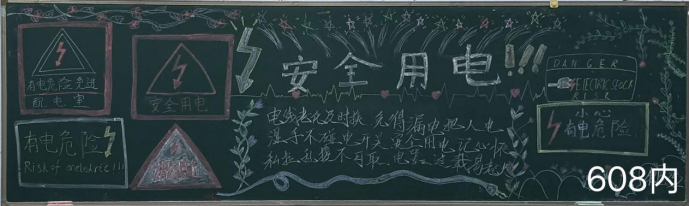 有电危险免进
配电室
安全用电
有电危险
Risk of
安全用电!!!
电线老化及时换 免得漏电把人电
湿手不碰电开关 安全用电记心怀
私拉乱接不可取
DANGER
ELECTRIC SHOCK
RISK
小心
有电危险
608内